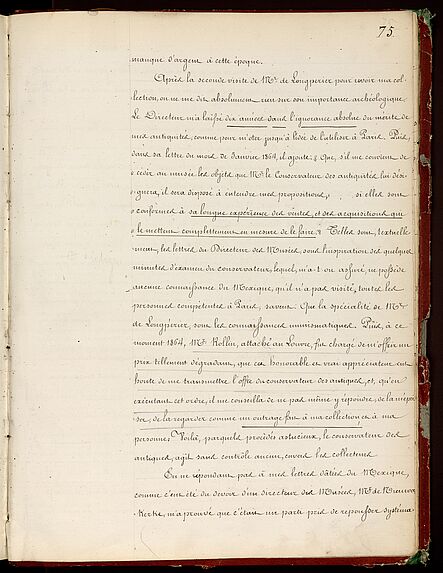 75.
manque d'argent à cette époque.
Après la seconde visite de Mr de Longperier pour revoir ma col-
lection, on ne me dit absolument rien sur son importance archéologique.
Le Directeur m'a laissé dix années dans l'ignorance absolue du mérite de
mes antiquités, comme pour m'ôter jusqu'à l'idée de l'utiliser à Paris. Puis,
dans sa lettre du mois de Janvier 1864, il ajoute : Que, s'il me convient de
céder au musée les objets que Mr le Conservateur des antiquités lui dési-
gnera, il sera disposé à entendre mes propositions, si elles sont
conformes à sa longue expérience des ventes, et des acquisitions que
le mettent complettement en mesure de le faire. Telles sont, textuelle-
ment, les lettres du Directeur des Musées, sous l'inspiration des quelques
minutes d'examen du conservateur, lequel, m'a-t-on assuré, ne possède
aucune connaissance du Mexique, qu'il n'a pas visité, toutes les
personnes compétentes à Paris, savent Que la spécialité de Mr
de Longpérier, sont les connaissances numismatiques. Puis, à ce
moment 1864, Mr Rollin, attaché au Louvre, fut chargé de m'offrir un
prix tellement dégradant, que cet honorable et vrai appréciateur eut
honte de me transmettre l'offre du conservateur des antiques, et, qu'en
exécutant cet ordre, il me conseilla de ne pas même y répondre, de la mépri-
ser, de la regarder comme un outrage fait à ma collection et à ma
personne. Voilà, par quels procédés astucieux, le conservateur des
antiques, agit sans contrôle aucun, envers les collecteurs
En ne répondant pas à mes lettres datées du Mexique,
comme c'eut été du devoir d'un directeur des Musées, Mr de Nieuwer-
kerke, m'a prouvé que c'était un parti pris de repousser systéma-